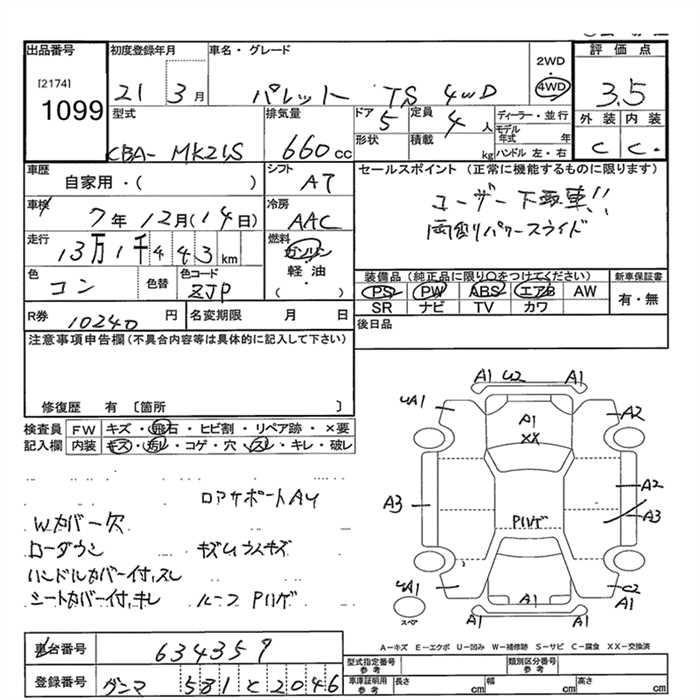 出品番号
[2174]
1099
初度登録年月
21 3月
車名・グレード
パレット TS 4WD
2WD
・
4WD
評価点
3.5
外装 内装
C C
型式
CBA- MK21S
排気量
660cc
ドア
5
形状
定員
4人
積載
kg
ディーラー・並行
モデル年式 年
ハンドル 左・右
車歴
自家用・( )
シフト
AT
車検
7年12月(14日)
冷房
AAC
走行
13万1千443km
燃料
ガソリン
軽油
( )
色
コン
色替
色コード
ZJP
セールスポイント (正常に機能するものに限ります)
ユーザー下取車!!
両側パワースライド
装備品(純正品に限り○をつけてください)
PS PW ABS エアB AW
SR ナビ TV カワ
新車保証書
有・無
R券 10240円
名変期限 月 日
後日品
注意事項申告欄(不具合内容等は具体的に記入して下さい)
修復歴 有〔箇所 〕
検査員記入欄
FW キズ・飛石・ヒビ割・リペア跡・×要
内装 キズ・汚レ・コゲ・穴・スレ・キレ・破レ
ロアサポートAU
Wカバー欠
ローダウン
キズUラスキズ
ハンドルカバー付,スレ
シートカバー付,キレ
ルーフ Pハゲ
A1 W2 A1
UA1
A2
A1
XX
A3
A2
A3
Pハゲ
UA1
C2
A1
A1
A1
スペア
A-キズ E-エクボ U-凹み W-補修跡 S-サビ C-腐食 XX-交換済
車台番号
634359
登録番号
グンマ 581 と 2046
型式指定番号
参考
類別区分番号
参考
車庫証明用
参考
長さ cm
幅 cm
高さ cm